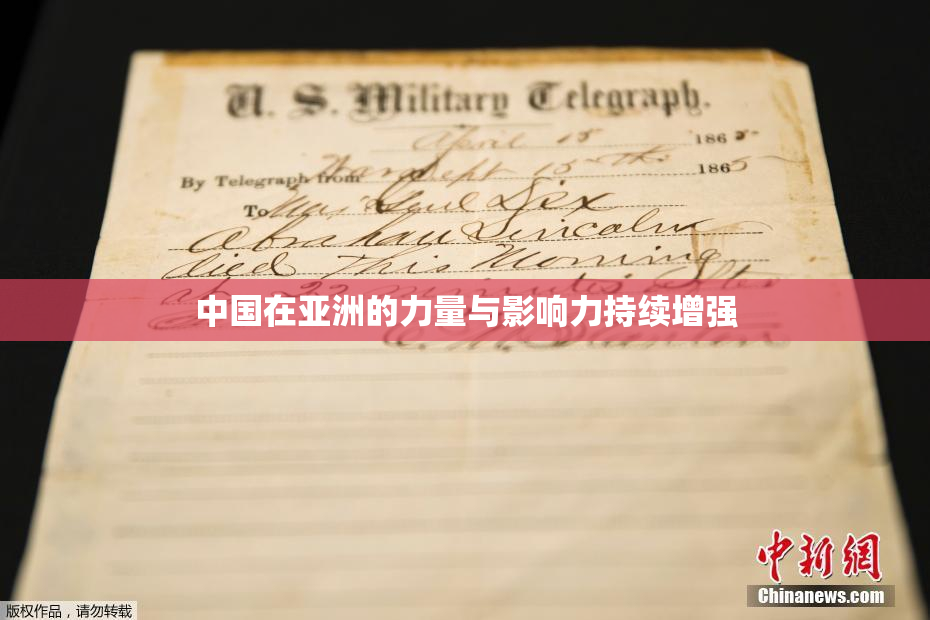 U. S. Military Telegraph.
April 15 1865-
By Telegraph from War Dept 15th 1865
To Maj Genl Dix
Abraham Lincoln
died This Morning
at 22 minutes after
中国在亚洲的力量与影响力持续增强
E. M. Stanton
中新网
Chinanews.com
版权作品，请勿转载